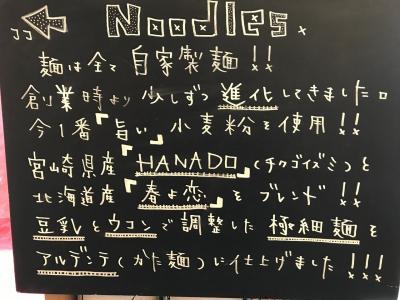 ココ Noodles.
麺は全て 自家製麺!!
創業時より 少しずつ 進化してきました。
今1番『旨い』小麦粉を使用!!
宮崎県産『HANADO』(チクゴイズミ)と
北海道産『春よ恋』をブレンド!!
豆乳とウコンで調整した 極細麺を
アルデンテ(かた麺)に仕上げました!!!